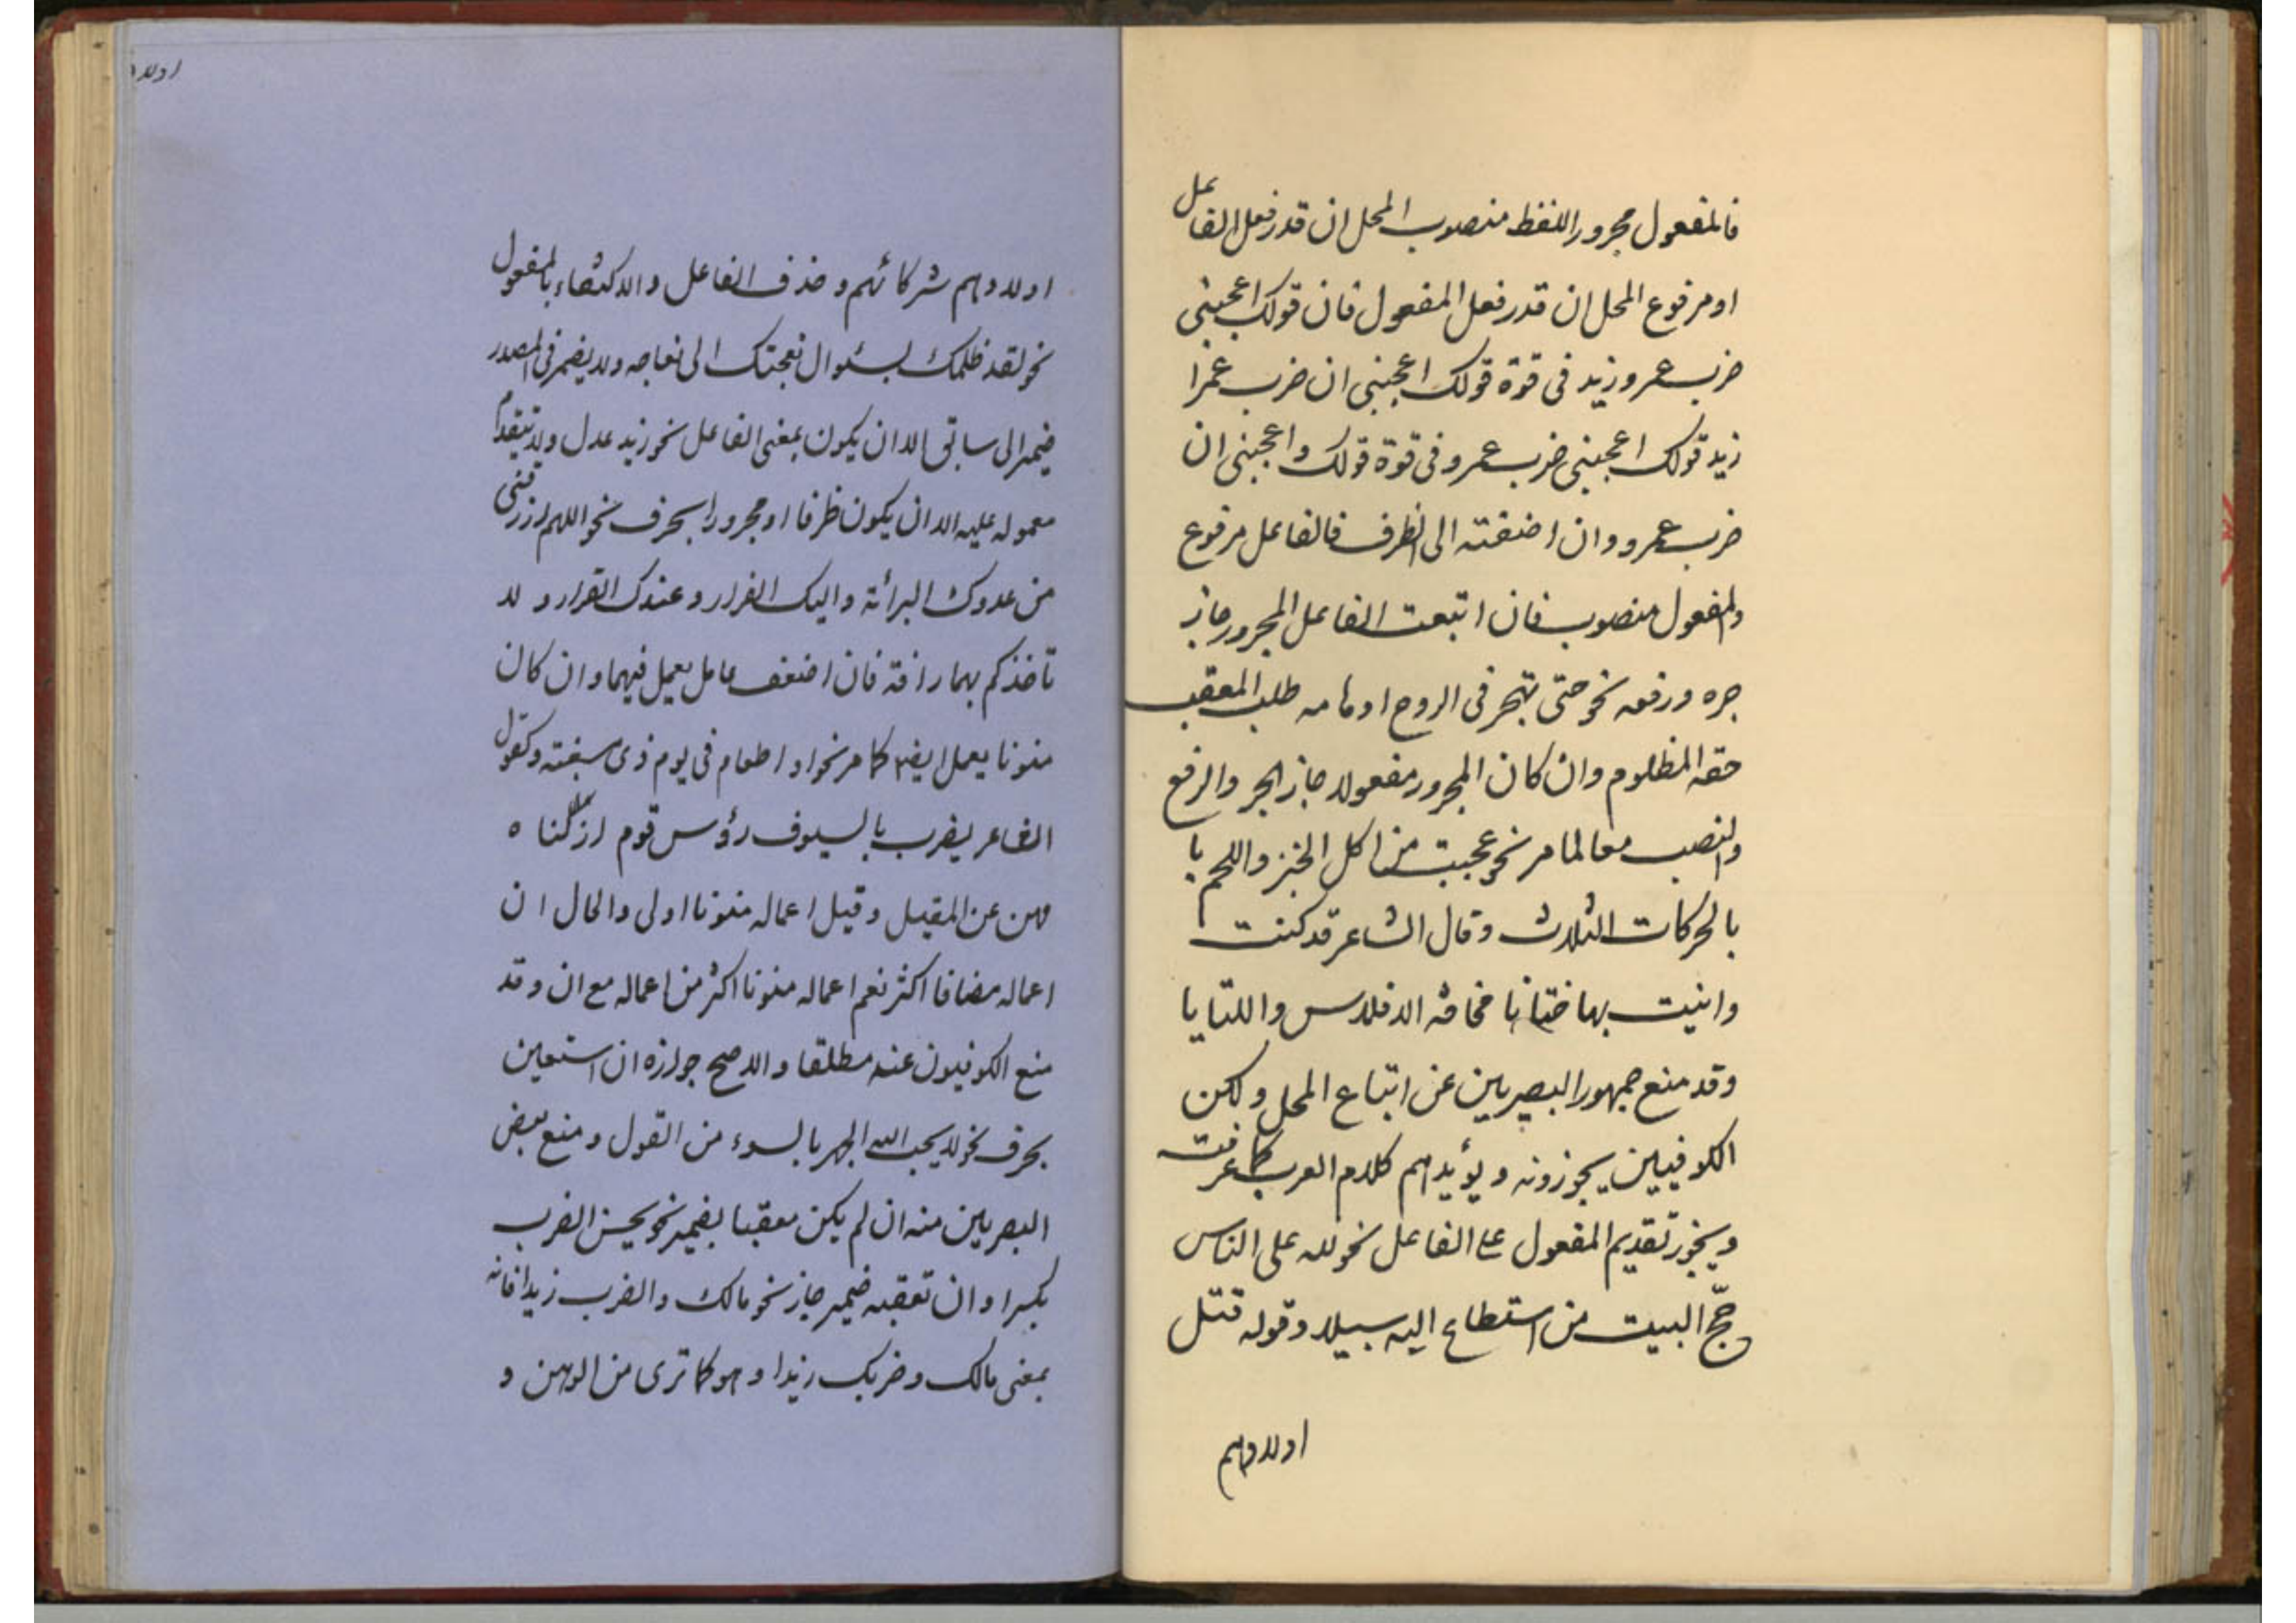 فالمفعول مجرور اللفظ منصوب المحل ان قدر فعل الفاعل
او مرفوع المحل ان قدر فعل المفعول فان قولك اعجبنى
ضرب عمرو زيد فى قوة قولك اعجبنى ان ضرب عمرا
زيد قولك اعجبنى ضرب عمرو فى قوة قولك واعجبنى ان
ضرب عمرو وان اضفته الى الظرف فالفاعل مرفوع
والمفعول منصوب فان اتبعت الفاعل المجرور جاز
جره ورفعه نحو حتى تهجر فى الروح اوهامه طلب المعقب
حقه المظلوم وان كان المجرور مفعولا جاز الجر والرفع
والنصب معا لما مر نحو عجبت من اكل الخبز واللحم با
بالحركات الثلاث وقال الشاعر قد كنت
وانيت بها ختانا مخافة الافلاس والليانا
وقد منع جمهور البصريين عن اتباع المحل ولكن
الكوفيين يجوزونه ويؤيدهم كلام العرب كما عرفت
ويجوز تقديم المفعول على الفاعل نحو لله على الناس
حجّ البيت من استطاع اليه سبيلا وقوله قتل
اولادهم
اولاد
اولادهم شركائهم وحذف الفاعل والاكتفاء بالمفعول
نحو لقد ظلمك بسئوال نعجتك الى نعاجه ولا يضمر فى المصدر
ضمير الى سابق الا ان يكون بمعنى الفاعل نحو زيد عدل ولا يتقدم
معموله عليه الا ان يكون ظرفا او مجرورا بحرف نحو اللهم ارزقنى
من عدوك البرائة واليك الفرار وعندك القرار و لا
تاخذكم بهما رافة فان اضعف عامل يعمل فيهما وان كان
منونا يعمل ايضا كما مر نحو او اطعام فى يوم ذى مسغبة وكقول
الشاعر بضرب بالسيوف رؤس قوم ازلنا ه
مهن عن المقيل وقيل اعماله منونا اولى والحال ان
اعماله مضافا اكثر نعم اعماله منونا اكثر من اعماله مع ان وقد
منع الكوفيون عنه مطلقا والاصح جوازه ان استعين
بحرف نحو لا يحب الله الجهر بالسوء من القول ومنع بعض
البصريين منه ان لم يكن معقبا بضمير نحو يحسن الضرب
بكرا وان تعقبه ضمير جاز نحو مالك والضرب زيدا فانه
بمعنى مالك وضربك زيدا وهو كما ترى من الوهن و